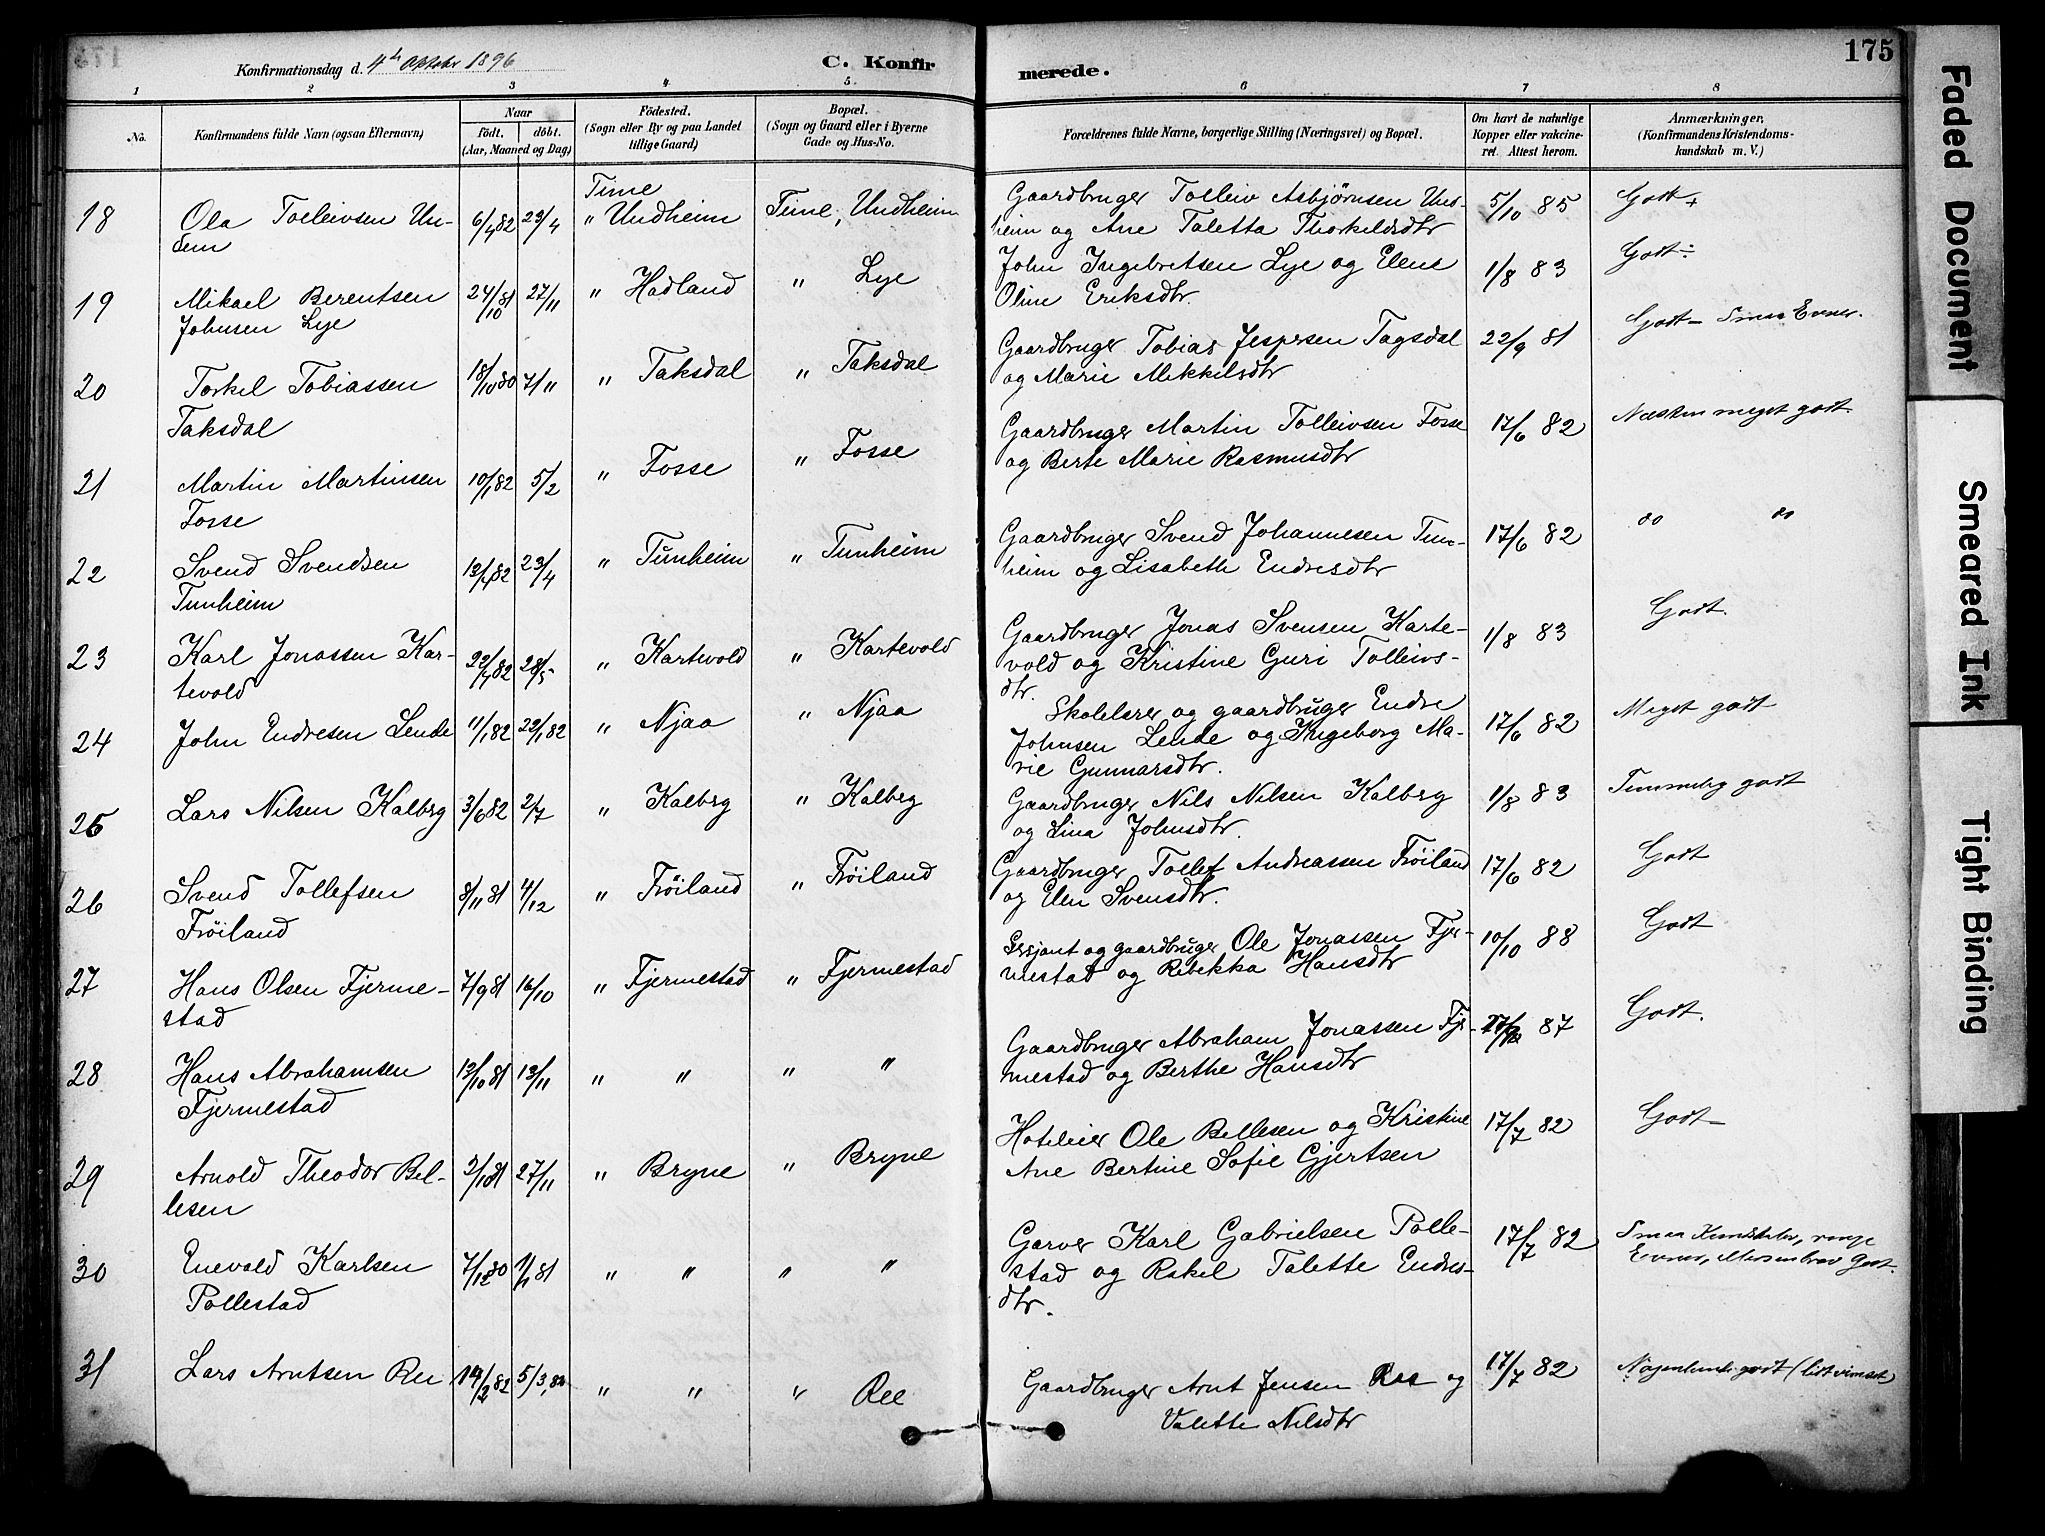 Konfirmationsdag d. 4de Oktober 1896
C. Konfirmerede.
175
1 2 3 4 5 6 7 8
No.
Konfirmandens fulde Navn (ogsaa Efternavn)
Naar
födt. döbt.
(Aar, Maaned og Dag)
Födested.
(Sogn eller By og paa Landet
tillige Gaard)
Bopæl.
(Sogn og Gaard eller i Byerne
Gade og Hus-No.
Forældrenes fulde Navne, borgerlige Stilling (Næringsvei) og Bopæl.
Om havt de naturlige
Kopper eller vakcineret. Attest herom.
Anmærkninger.
(Konfirmandens Kristendoms-
kundskab m. V.)
18 Ola Tolleivsen Un- 6/4 82 23/4 Time " Undheim Time, Undheim
Gaardbruger Tolleiv Asbjørnsen Un-
heim og Ane Taletta Thorkeldsdtr 5/10 85 Godt +
19 Mikael Berentsen
Johnsen Lye 24/10 81 27/11 " Hadland " Lye
John Ingebretsen Lye og Elene
Oline Eriksdtr. 1/8 83 Godt ÷
20 Torkel Tobiassen
Taksdal 18/10 80 7/11 " Taksdal " Taksdal
Gaardbruger Tobias Jespersen Tagsdal
og Marie Mikkelsdtr 22/9 81 Godt - Smaa Evner.
21 Martin Martinsen
Fosse 10/1 82 5/2 " Fosse " Fosse
Gaardbruger Martin Tolleivsen Fosse
og Berte Marie Rasmusdtr 17/6 82 Næsten meget godt.
22 Svend Svendsen
Tunheim 23/4 " Tunheim " Tunheim
Gaardbruger Svend Johannesen Tun-
heim og Lisabeth Endresdtr 17/6 82 do do
23 Karl Jonassen Kar-
tevold 22/4 82 28/5 " Kartevold " Kartevold
Gaardbruger Jonas Svensen Karte-
vold og Kristine Guri Tolleivs-
dtr. 1/8 83 Godt.
24 John Endresen Lende 11/1 82 22/1 82 " Njaa " Njaa
Skolelærer og gaardbruger Endre
Johnsen Lende og Ingeborg Ma-
rie Gunnarsdtr. 17/6 82 Meget godt
25 Lars Nilsen Kalberg 3/6 82 2/7 " Kalberg " Kalberg
Gaardbruger Nils Nilsen Kalberg
og Lina Johnsdtr. 1/8 83 Temmelig godt
26 Svend Tollefsen
Frøiland 8/11 81 4/12 " Frøiland " Frøiland
Gaardbruger Tollef Andreassen Frøiland
og Elen Svensdtr. 17/6 82 Godt
27 Hans Olsen Fjerme-
stad 7/9 81 16/10 " Fjermestad " Fjermestad
Sersjant og gaardbruger Ole Jonassen Fjer-
mestad og Rebekka Hansdtr 10/10 88 Godt
28 Hans Abrahamsen
Fjermestad 12/10 81 13/11 " " " "
Gaardbruger Abraham Jonassen Fje-
rmestad og Berthe Hansdtr 87 Godt.
29 Arnold Theodor Bel-
lesen 27/11 " Bryne " Bryne
Hoteleier Ole Bellesen og Kristine
Ane Bertine Sofie Gjertsen 17/7 82 Godt -
30 Enevald Karlsen
Pollestad 7/12 80 1/1 81 " " " "
Garver Karl Gabrielsen Polle-
stad og Rakel Talette Endres-
dtr. 17/7 82 Smaa Kundskaber, ringe
Evner,
31 Lars Arntsen Ree 19/2 82 5/3, 82 " " " Ree
Gaardbruger Arnt Jensen Ree og
Valette Nilsdtr 17/7 82 Nogenlunde godt (lidt vimset)
Faded Document
Smeared Ink
Tight Binding